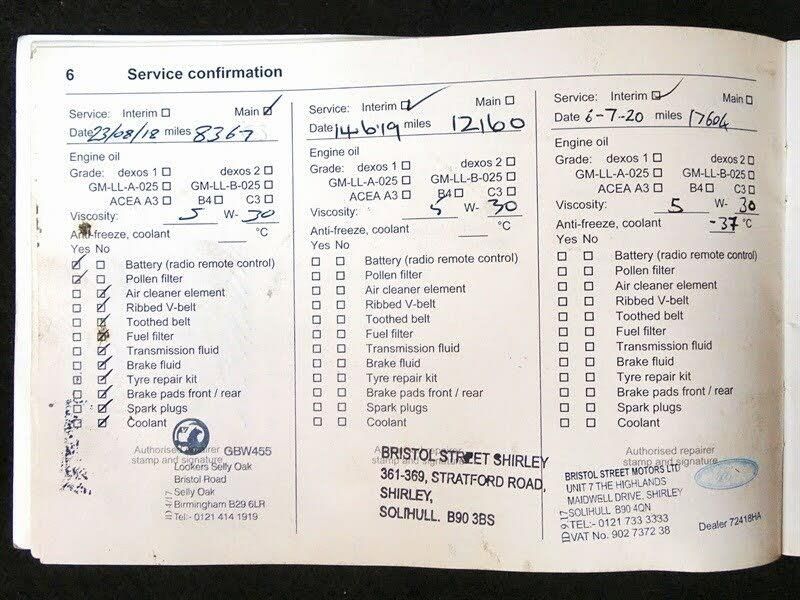 6 Service confirmation
Service: Interim Main
Date 23/08/18 miles 8367
Engine oil
Grade: dexos 1 dexos 2
GM-LL-A-025 GM-LL-B-025
ACEA A3 B4 C3
Viscosity: 5 W- 30
Anti-freeze, coolant °C
Yes No
Battery (radio remote control)
Pollen filter
Air cleaner element
Ribbed V-belt
Toothed belt
Fuel filter
Transmission fluid
Brake fluid
Tyre repair kit
Brake pads front / rear
Spark plugs
Coolant
Authorised repairer
stamp and signature
GBW455
Lookers Selly Oak
Bristol Road
Selly Oak
Birmingham B29 6LR
Tel:- 0121 414 1919
Service: Interim Main
Date 14.6.19 miles 12160
Engine oil
Grade: dexos 1 dexos 2
GM-LL-A-025 GM-LL-B-025
ACEA A3 B4 C3
Viscosity: 5 W- 30
Anti-freeze, coolant °C
Yes No
Battery (radio remote control)
Pollen filter
Air cleaner element
Ribbed V-belt
Toothed belt
Fuel filter
Transmission fluid
Brake fluid
Tyre repair kit
Brake pads front / rear
Spark plugs
Coolant
Authorised repairer
stamp and signature
BRISTOL STREET SHIRLEY
361-369, STRATFORD ROAD,
SHIRLEY,
SOLIHULL. B90 3BS
Service: Interim Main
Date 6-7-20 miles 17604
Engine oil
Grade: dexos 1 dexos 2
GM-LL-A-025 GM-LL-B-025
ACEA A3 B4 C3
Viscosity: 5 W- 30
Anti-freeze, coolant -37 °C
Yes No
Battery (radio remote control)
Pollen filter
Air cleaner element
Ribbed V-belt
Toothed belt
Fuel filter
Transmission fluid
Brake fluid
Tyre repair kit
Brake pads front / rear
Spark plugs
Coolant
Authorised repairer
stamp and signature
BRISTOL STREET MOTORS LTD
UNIT 7 THE HIGHLANDS
MAIDWELL DRIVE. SHIRLEY
SOLIHULL B90 4QN
TEL:- 0121 733 3333
VAT No. 902 7372 38
Dealer 72418HA